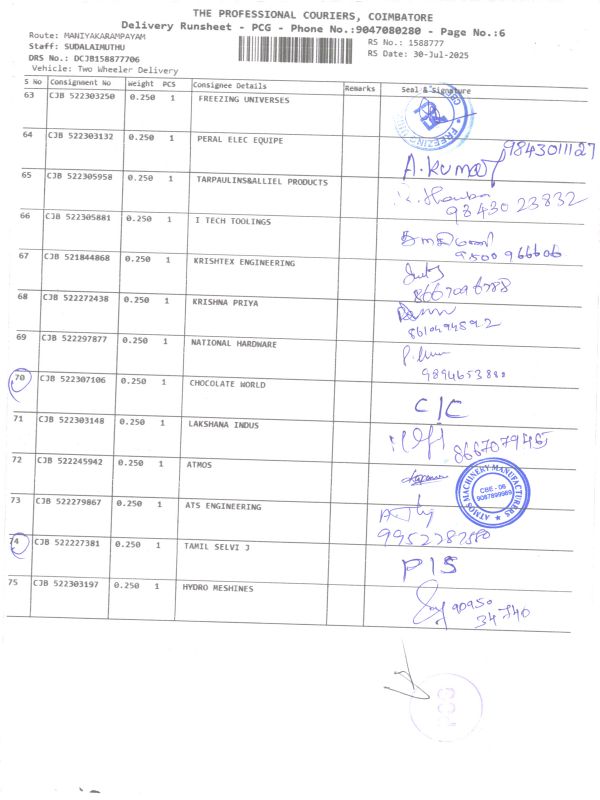 THE PROFESSIONAL COURIERS, COIMBATORE
Delivery Runsheet - PCG - Phone No.:9047080280 - Page No.:6
Route: MANIYAKARAMPAYAM
RS No.: 1588777
Staff: SUDALAIMUTHU
RS Date: 30-Jul-2025
DRS No.: DCJB158877706
Vehicle: Two Wheeler Delivery
S No Consignment No Weight PCS Consignee Details Remarks Seal & Signature
63 CJB 522303250 0.250 1 FREEZING UNIVERSES
64 CJB 522303132 0.250 1 PERAL ELEC EQUIPE A.Kumar 9843011127
65 CJB 522305958 0.250 1 TARPAULINS&ALLIEL PRODUCTS 98430 23832
66 CJB 522305881 0.250 1 I TECH TOOLINGS 9500 966606
67 CJB 521844868 0.250 1 KRISHTEX ENGINEERING
68 CJB 522272438 0.250 1 KRISHNA PRIYA
69 CJB 522297877 0.250 1 NATIONAL HARDWARE 9894653880
70 CJB 522307106 0.250 1 CHOCOLATE WORLD C/C
71 CJB 522303148 0.250 1 LAKSHANA INDUS
72 CJB 522245942 0.250 1 ATMOS ATMOS MACHINERY MANUFACTURERS CBE - 06
73 CJB 522279867 0.250 1 ATS ENGINEERING
74 CJB 522227381 0.250 1 TAMIL SELVI J P/S
75 CJB 522303197 0.250 1 HYDRO MESHINES 90950
34740